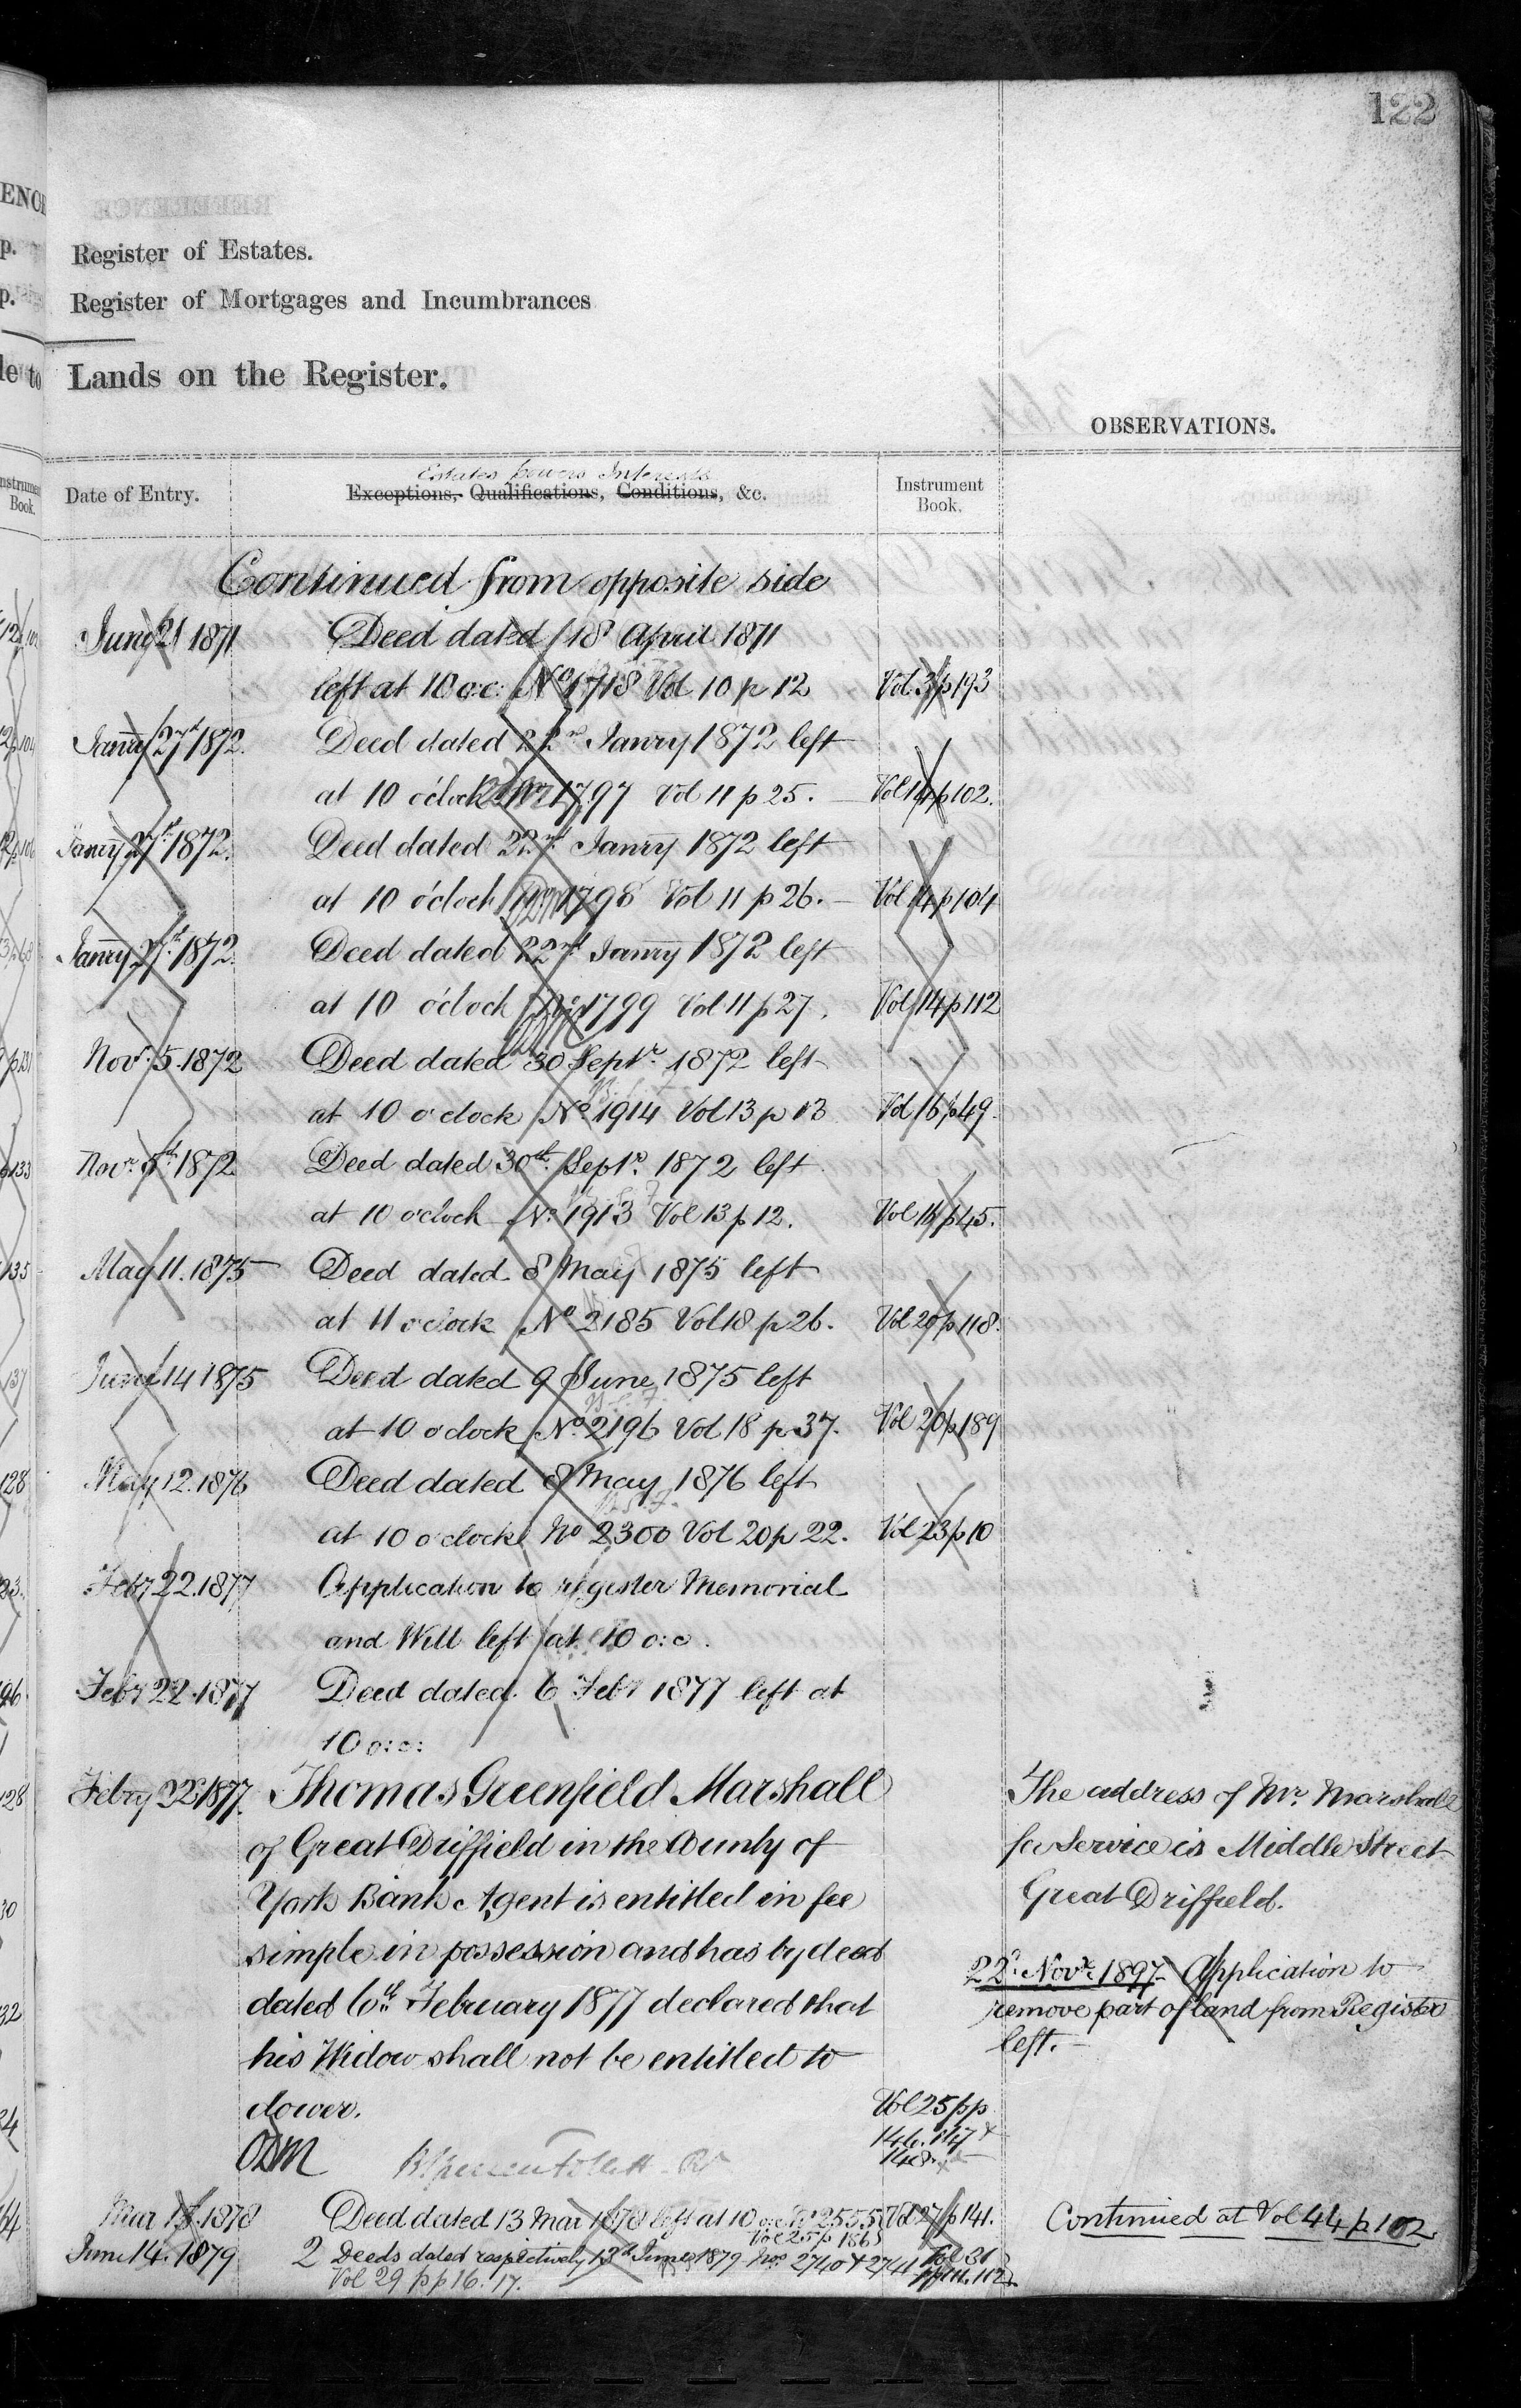 122
Register of Estates.
Register of Mortgages and Incumbrances
Lands on the Register.
OBSERVATIONS.
Estates powers Interests
Date of Entry.
Exceptions, Qualifications, Conditions, &c.
Instrument
Book.
Continued from opposite side
June 21 1871 Deed dated 18 April 1871
left at 10 o:c: No 1718 Vol 10 p 12 Vol 3 p 193
Janry 27th 1872. Deed dated 22nd Janry 1872 left
at 10 o'clock No 1797 Vol 11 p 25. Vol 14 p 102.
Janry 27th 1872. Deed dated 22nd Janry 1872 left
at 10 o'clock No 1798 Vol 11 p 26. Vol 14 p 104
Janry 27th 1872. Deed dated 22nd Janry 1872 left
at 10 o'clock No 1799 Vol 11 p 27. Vol 14 p 112
Novr. 5. 1872 Deed dated 30 Septr. 1872 left
at 10 o'clock No 1914 Vol 13 p 13 Vol 16 p 49.
Novr 5th 1872 Deed dated 30th Septr. 1872 left
at 10 o'clock No. 1913 Vol 13 p 12. Vol 16 p 45.
May 11. 1875 Deed dated 8 May 1875 left
at 11 o'clock No 2185 Vol 18 p 26. Vol 20 p 118.
June 14 1875 Deed dated 9 June 1875 left
at 10 o'clock No. 2196 Vol 18 p 37. Vol 20 p 189
May 12. 1876 Deed dated 8 May 1876 left
at 10 o'clock No 2300 Vol 20 p 22. Vol 23 p 10
Feby 22. 1877 Application to register Memorial
and Will left at 10 o:c.
Feby 22. 1877 Deed dated 6 Feby 1877 left at
10 o:c:
Febry 22d 1877. Thomas Greenfield Marshall
of Great Driffield in the County of
York Bank Agent is entitled in fee
simple in possession and has by deed
dated 6th February 1877 declared that
his Widow shall not be entitled to
dower.
Vol 25 pp
146. 147 &
148.
The address of Mr. Marshall
for Service is Middle Street
Great Driffield.
22d. Novr. 1897. Application to
remove part of land from Register
left.
Mar 1878 Deed dated 13 Mar 1878 left at 10 o:c No 2555 Vol 27 p 141.
Vol 25 p 186
June 14. 1879 2 Deeds dated respectively 13th June 1879 Nos 2740 & 2741 Vol 31
Vol 29 pp 16. 17. pp 111. 112
Continued at Vol 44 p 102